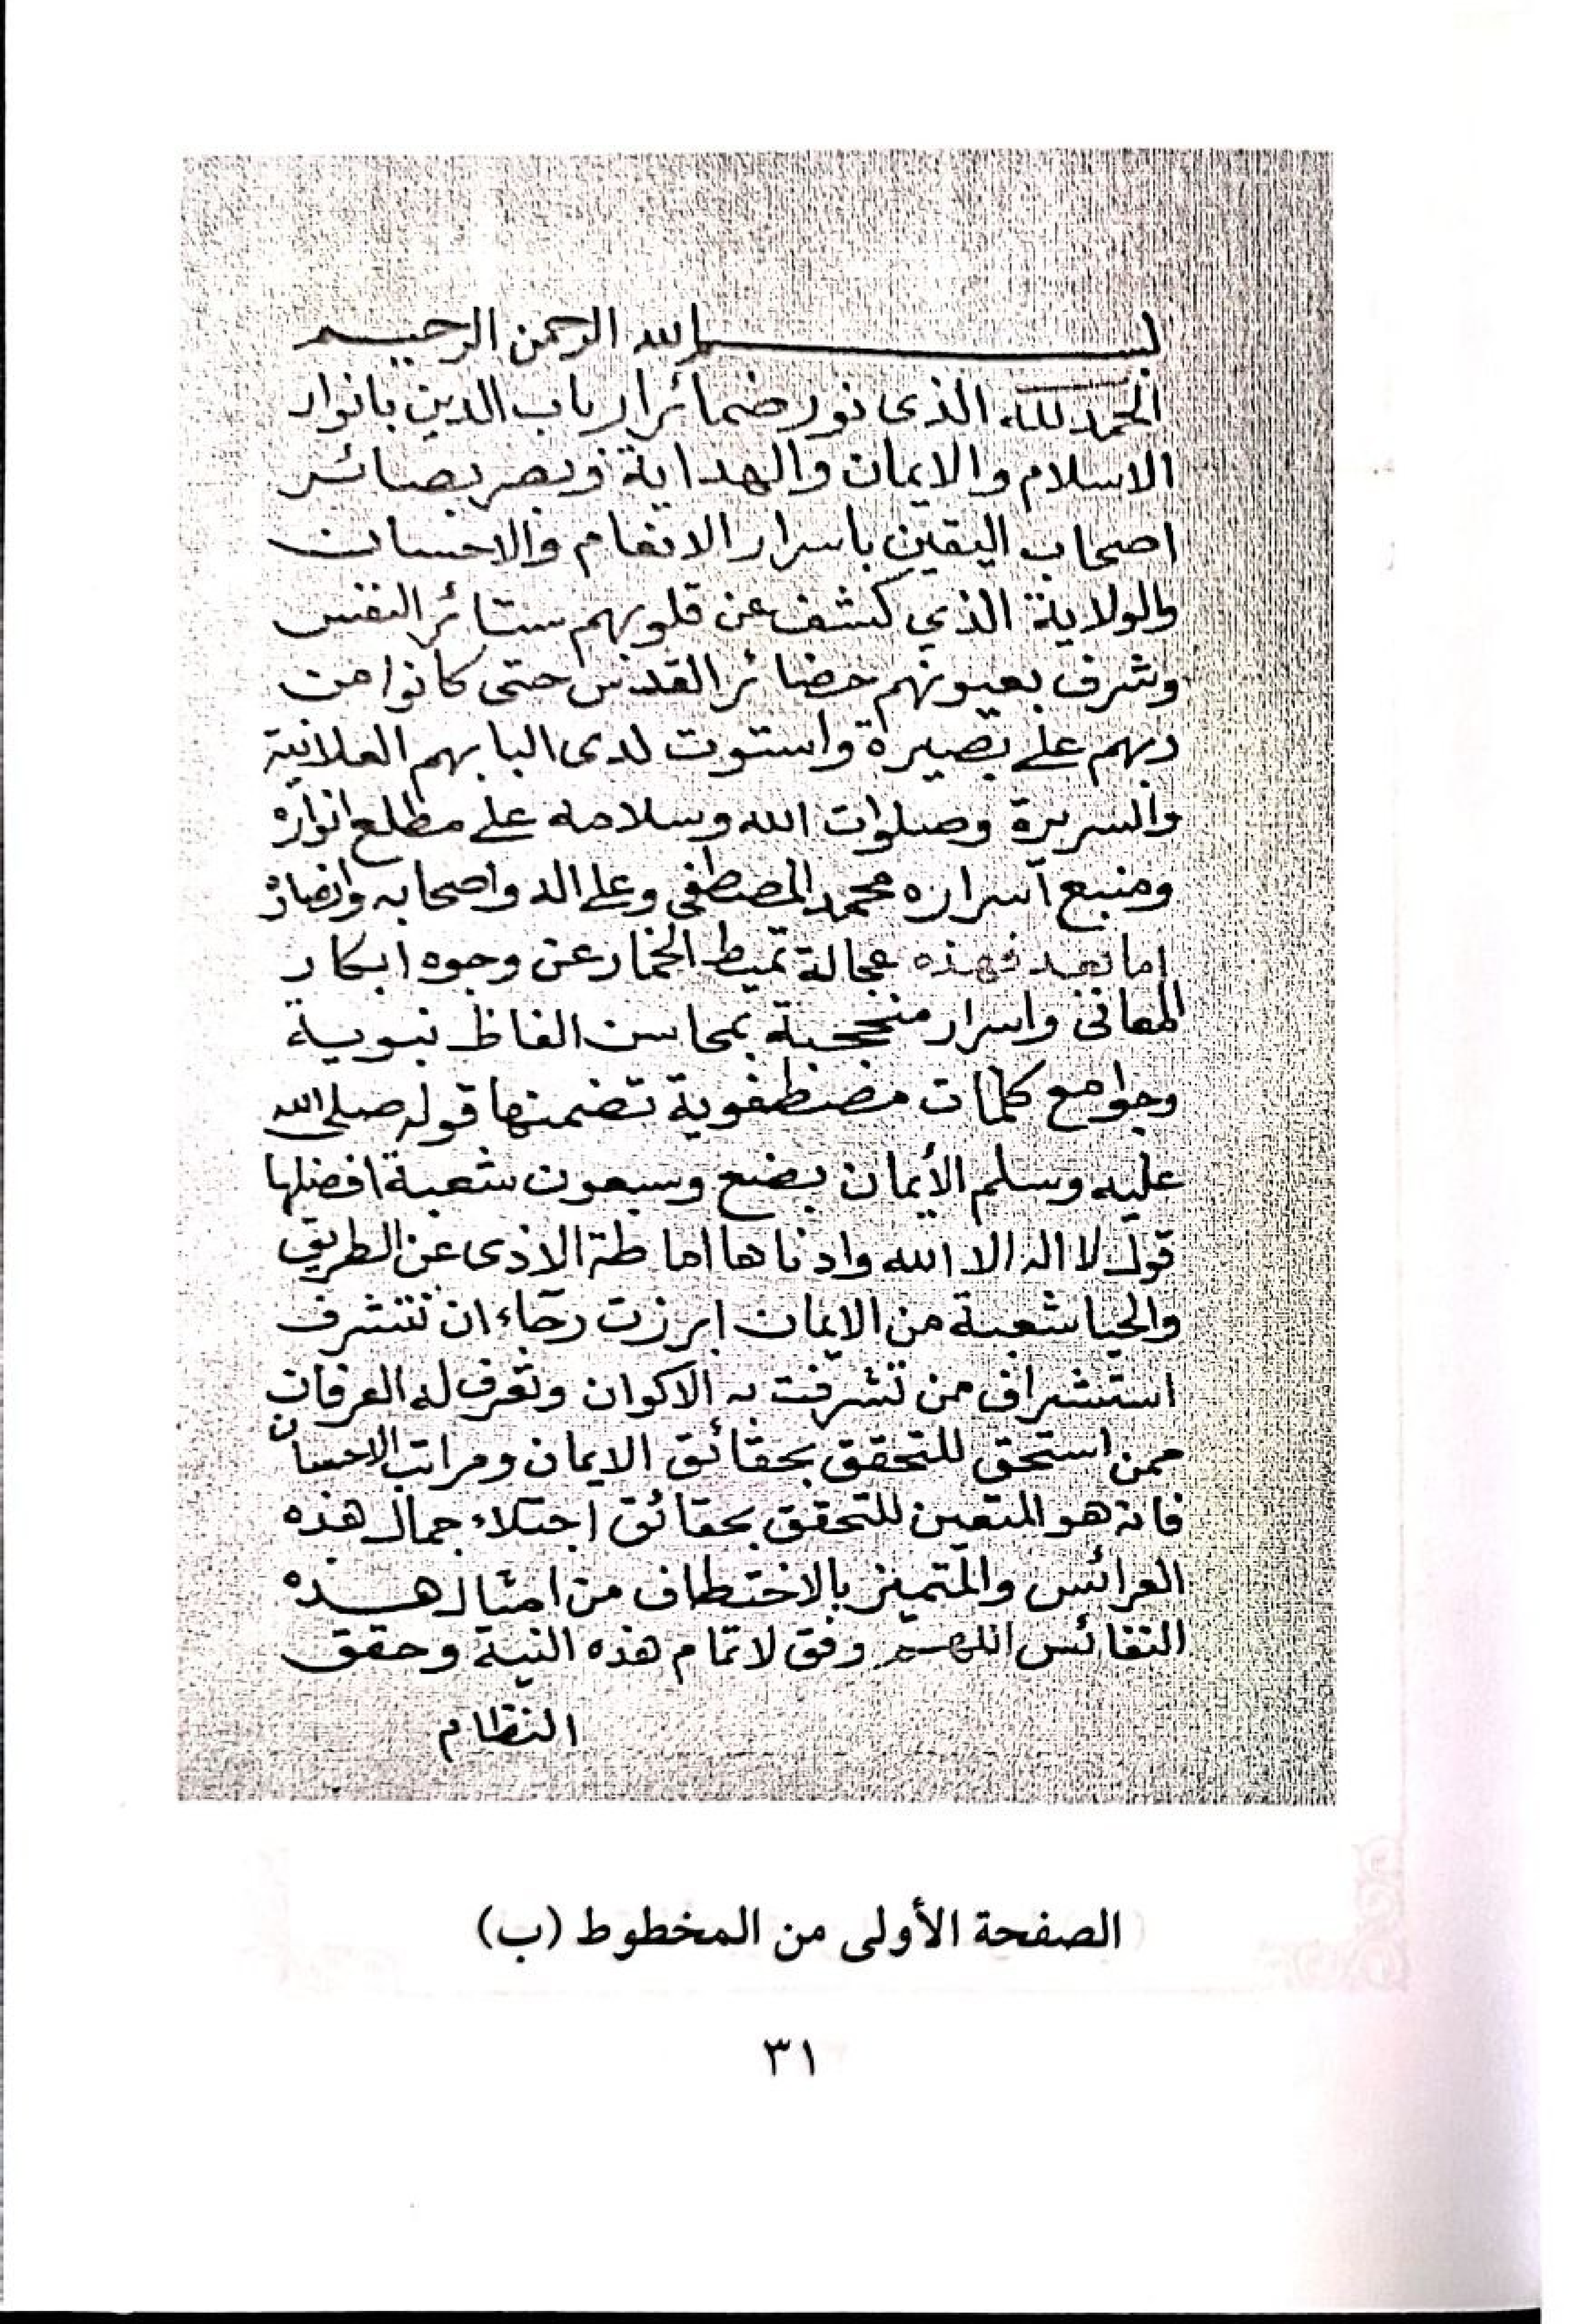 بسم الله الرحمن الرحيم
الحمد لله الذى نور ضمائر ارباب الدين بانوار
الاسلام والايمان والهداية وبصر بصائر
اصحاب اليقين باسرار الانعام والاحسان
والولاية الذي كشف عن قلوبهم ستائر النفس
وشرف بعيونهم حضائر القدس حتى كانوا من
ربهم على بصيرة واستوت لدى البابهم العلانية
والسريرة وصلوات الله وسلامه على مطلع انواره
ومنبع أسراره محمد المصطفى وعلى اله واصحابه وانصاره
اما بعد فهذه عجالة تميط الخمار عن وجوه ابكار
المعانى واسرار منحجبة بمحاسن الفاظ نبوية
وجوامع كلمات مصطفوية تضمنها قوله صلى الله
عليه وسلم الأيمان بضع وسبعون شعبة افضلها
قول لا اله الا الله وادناها اماطة الاذى عن الطريق
والحيا شعبة من الايمان ابرزت رجاء ان تتشرف
استشراف من تشرفت به الاكوان وتعرف له العرفان
ممن استحق للتحقق بحقائق الايمان ومراتب الاحسان
فانه هو المتعين للتحقق بحقائق اجتلاء جمال هذه
العرائس والمتميز بالاختطاف من امثال هذه
النفائس اللهم وفق لاتمام هذه النية وحقق
النظام
الصفحة الأولى من المخطوط (ب)
٣١